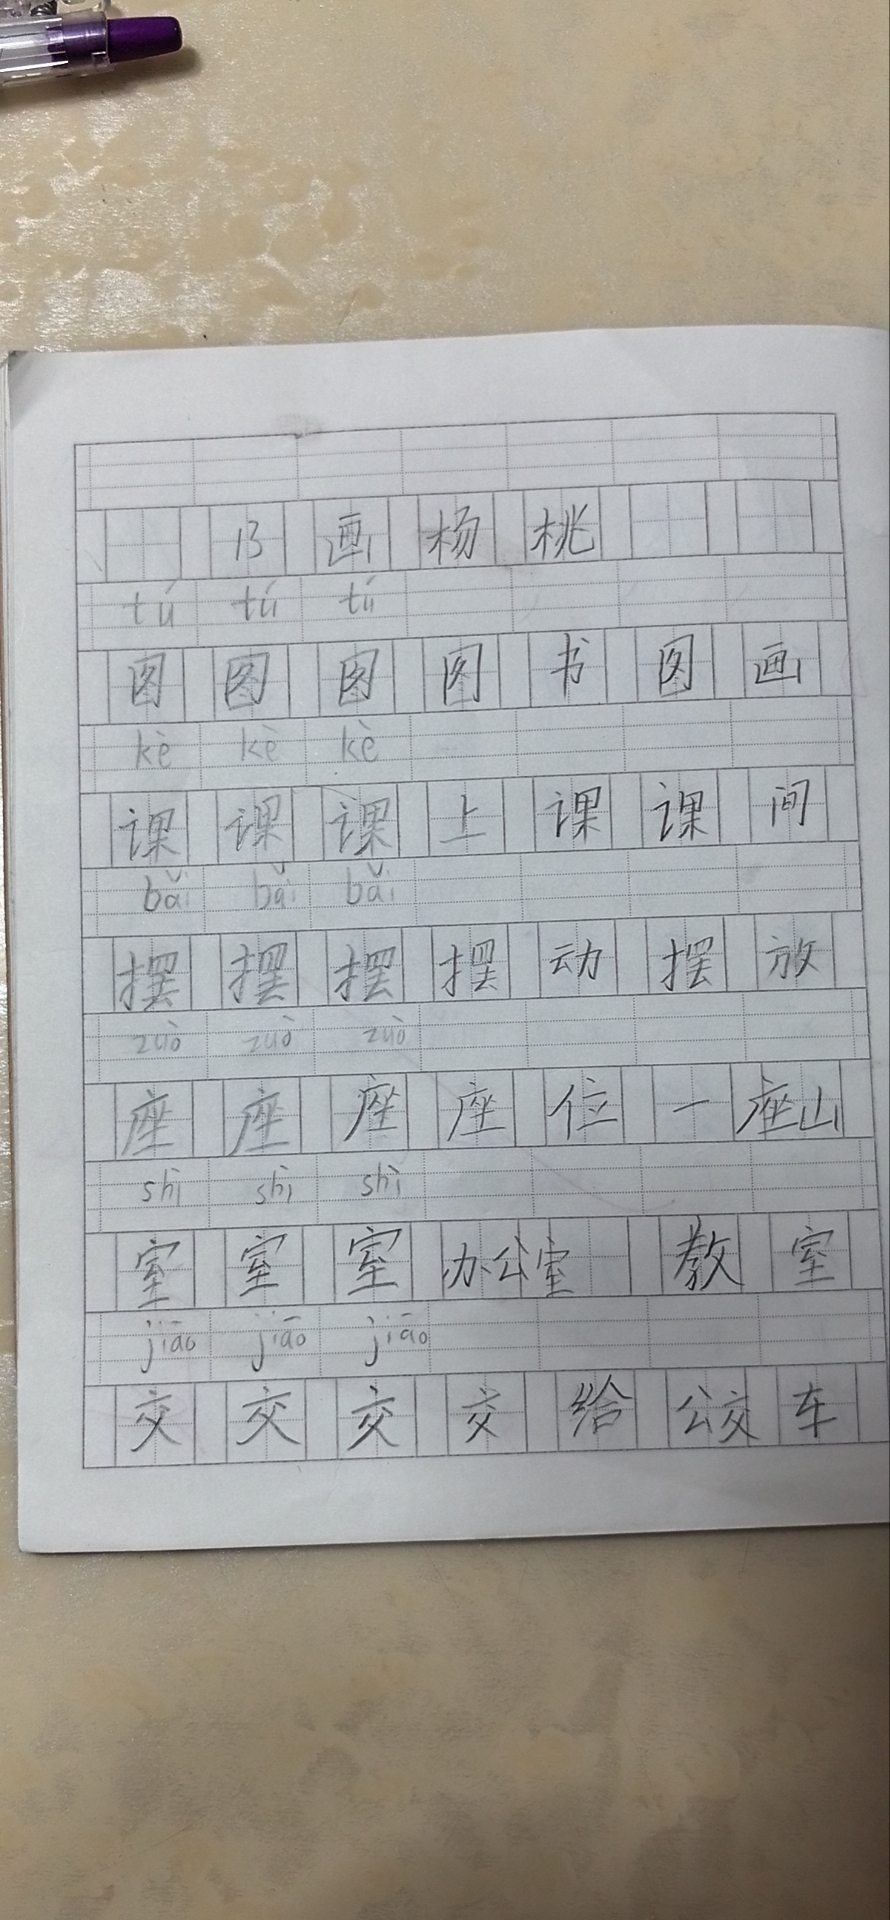 13 画杨桃
tú tú tú
图图图图书图画
kè kè kè
课课课上课课间
bǎi bǎi bǎi
摆摆摆摆动摆放
zuò zuò zuò
座座座座位一座山
shì shì shì
室室室办公室教室
jiāo jiāo jiāo
交交交交给公交车